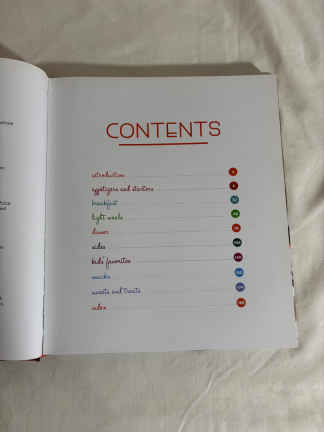 CONTENTS
introduction
appetizers and starters
breakfast
light meals
dinner
sides
kids' favorites
snacks
sweets and treats
index